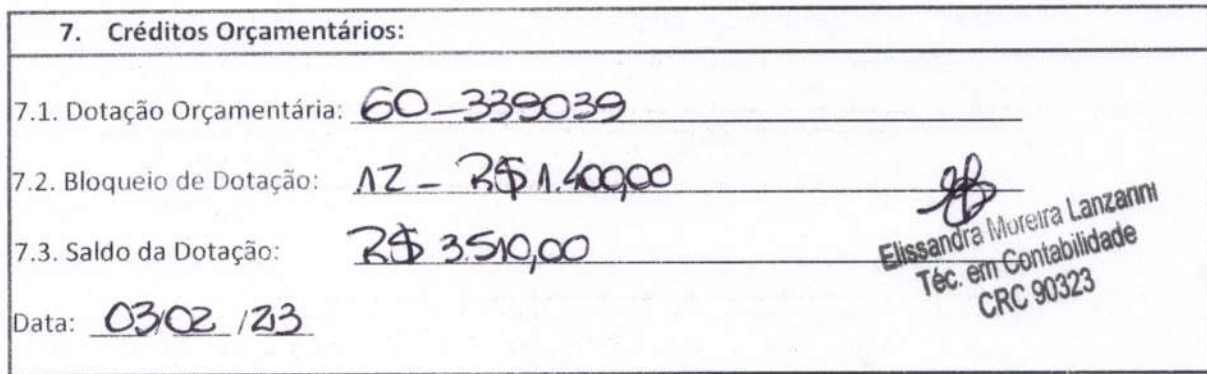 7. Créditos Orçamentários:
7.1. Dotação Orçamentária: 60-339039
7.2. Bloqueio de Dotação: 12 - R$ 1.400,00
7.3. Saldo da Dotação: R$ 3.510,00
Elissandra Moreira Lanzarini
Téc. em Contabilidade
CRC 90323
Data: 03/02/23